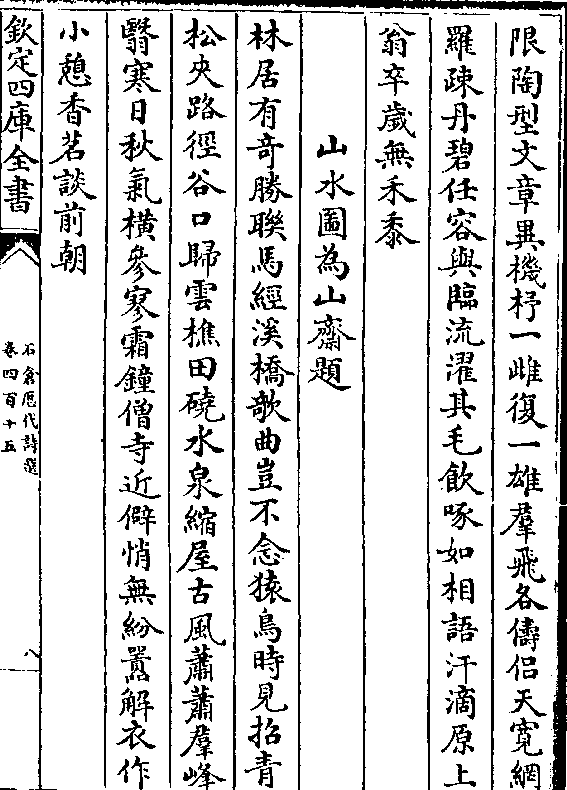 限陶型文章異機杼一雌復一雄羣飛各儔侣天寛網
羅疎丹碧任容與臨流濯其毛飲啄如相語汗滴原上
翁卒歲無禾黍
山水圖為山齋題
林居有竒勝聯馬經溪橋歌曲豈不念猿鳥時見招青
松夾路徑谷口歸雲樵田磽水泉縮屋古風蕭蕭羣峰
翳寒日秋氣横參寥霜鐘僧寺近僻悄無紛囂解衣作
小憩香茗談前朝
欽定四庫全書
石倉歴代詩選
卷四百十五
八